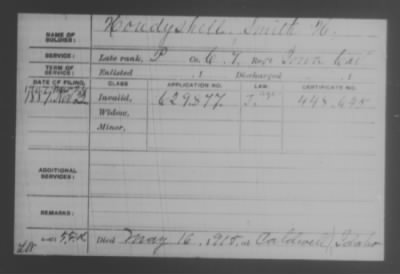 NAME OF SOLDIER: Houdyshell, Smith H.
SERVICE: Late rank, P Co. C 7, Reg't Iowa Cav
TERM OF SERVICE: Enlisted , 1 Discharged , 1
DATE OF FILING. CLASS. APPLICATION NO. LAW. CERTIFICATE NO.
1887 Nov Invalid, 629.577
Widow,
Minor,
ADDITIONAL SERVICES:
REMARKS:
Died May 16, 1915, at Caldwell, Idaho